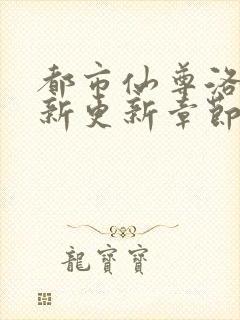 都市仙尊洛
新更新章節
龍寶寶